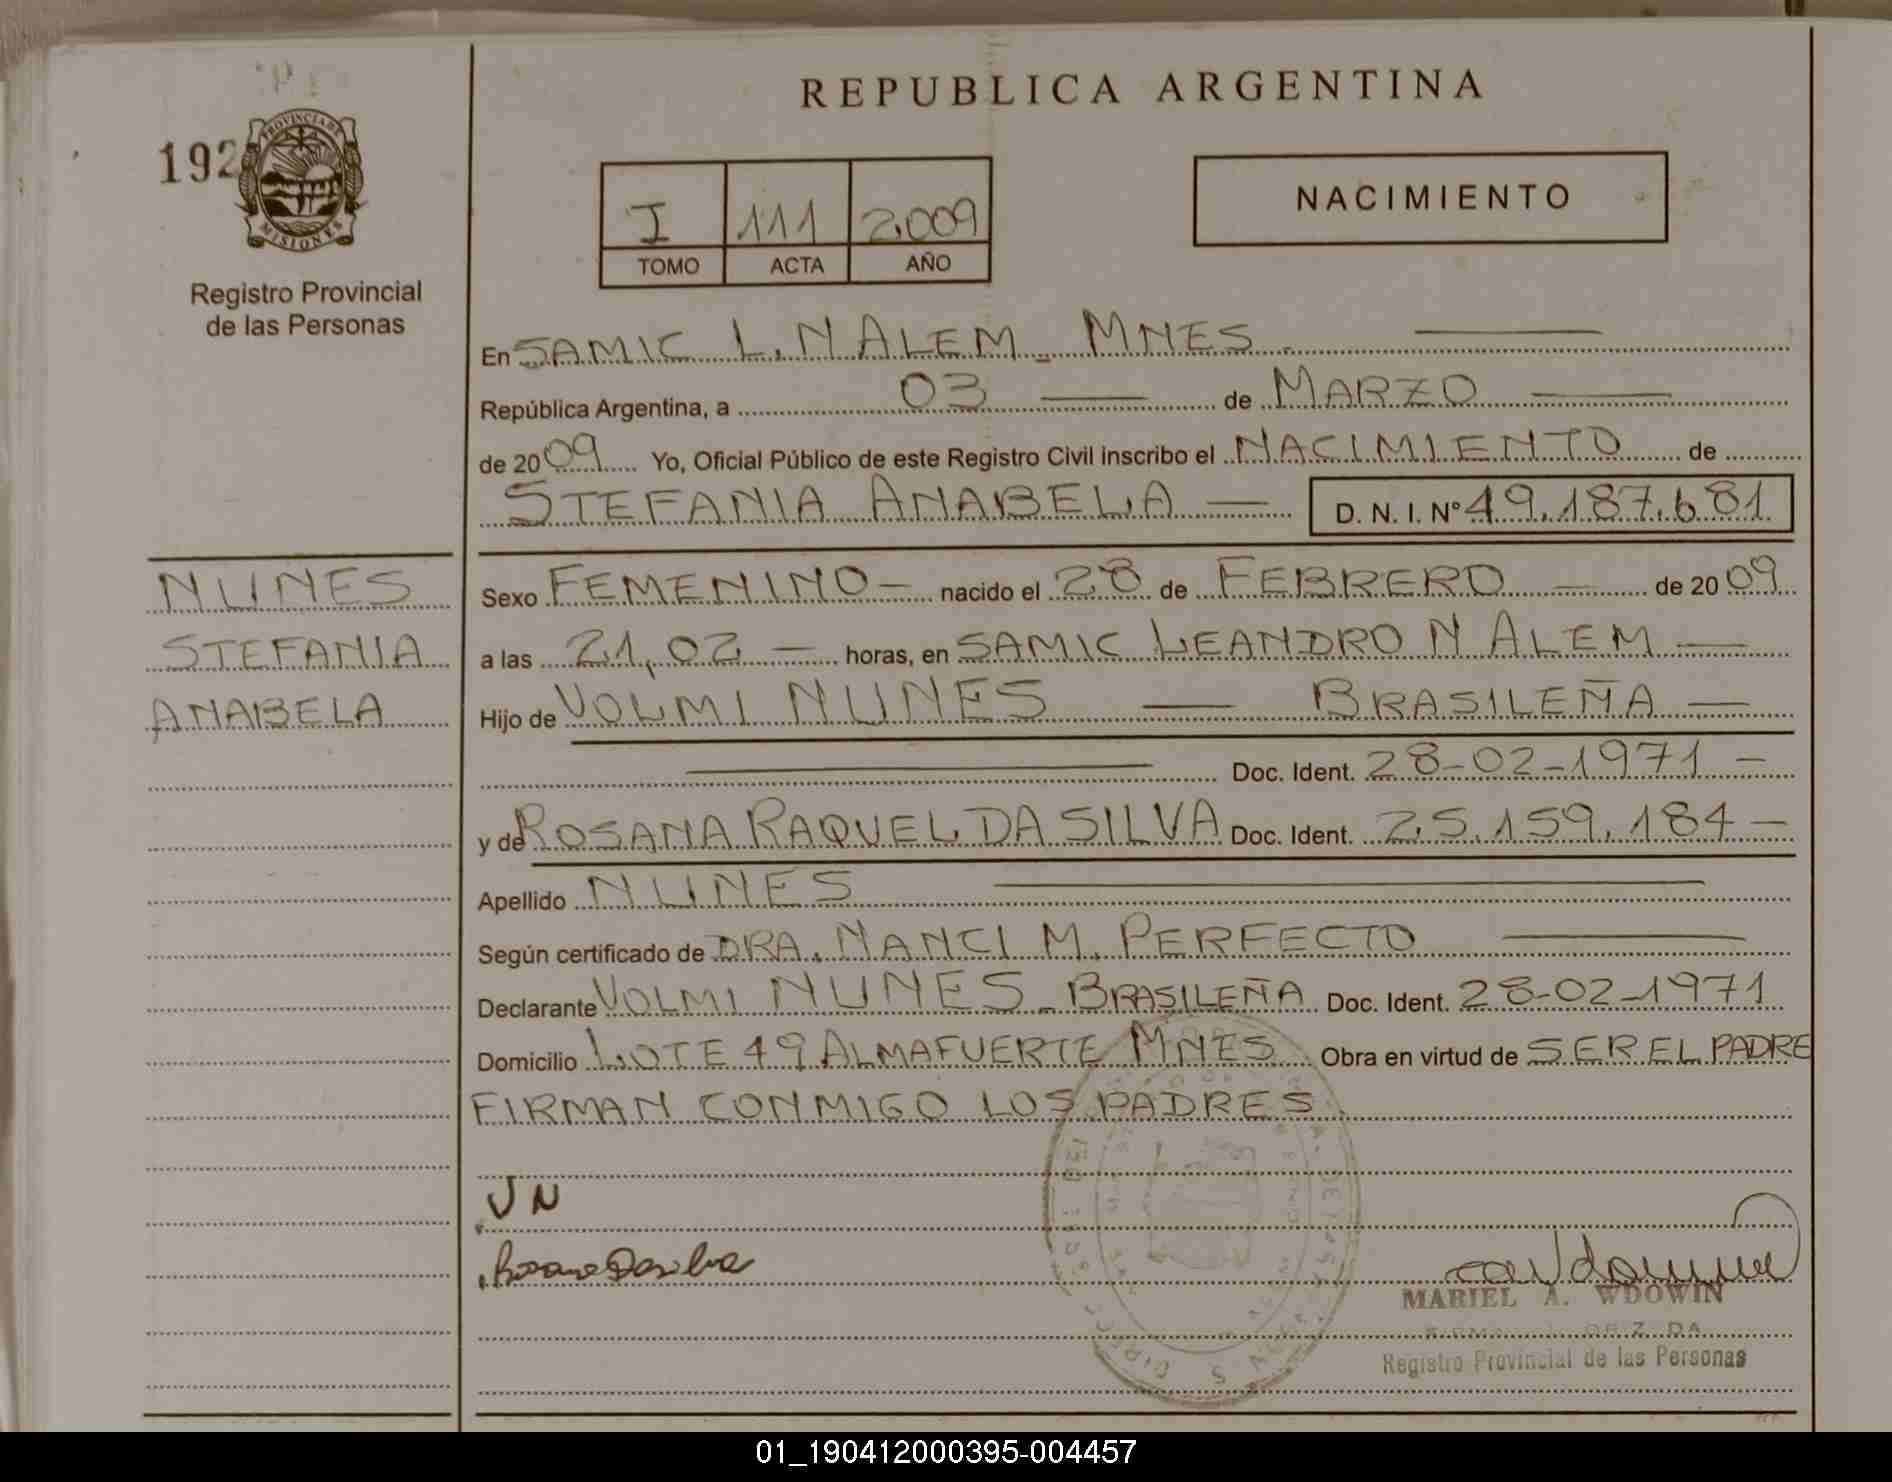 REPUBLICA ARGENTINA
192
PROVINCIA DE
MISIONES
Registro Provincial
de las Personas
I 111 2009
TOMO ACTA AÑO
NACIMIENTO
En SAMIC L. N ALEM - MNES
República Argentina, a 03 de MARZO
de 2009 Yo, Oficial Público de este Registro Civil inscribo el NACIMIENTO de
STEFANIA ANABELA D. N. I. Nº 49.187.681
NUNES
STEFANIA
ANABELA
Sexo FEMENINO nacido el 28 de FEBRERO de 2009
a las 21,02 horas, en SAMIC LEANDRO N ALEM
Hijo de VOLMI NUNES BRASILEÑA
Doc. Ident. 28-02-1971
y de ROSANA RAQUEL DA SILVA Doc. Ident. 25.159.184
Apellido NUNES
Según certificado de DRA. NANCI M. PERFECTO
Declarante VOLMI NUNES - BRASILEÑA Doc. Ident. 28-02-1971
Domicilio LOTE 49 ALMAFUERTE MNES Obra en virtud de SER EL PADRE
FIRMAN CONMIGO LOS PADRES
V N
Rosana Da silva
MARIEL A. WDOWIN
Registro Provincial de las Personas
01_190412000395-004457